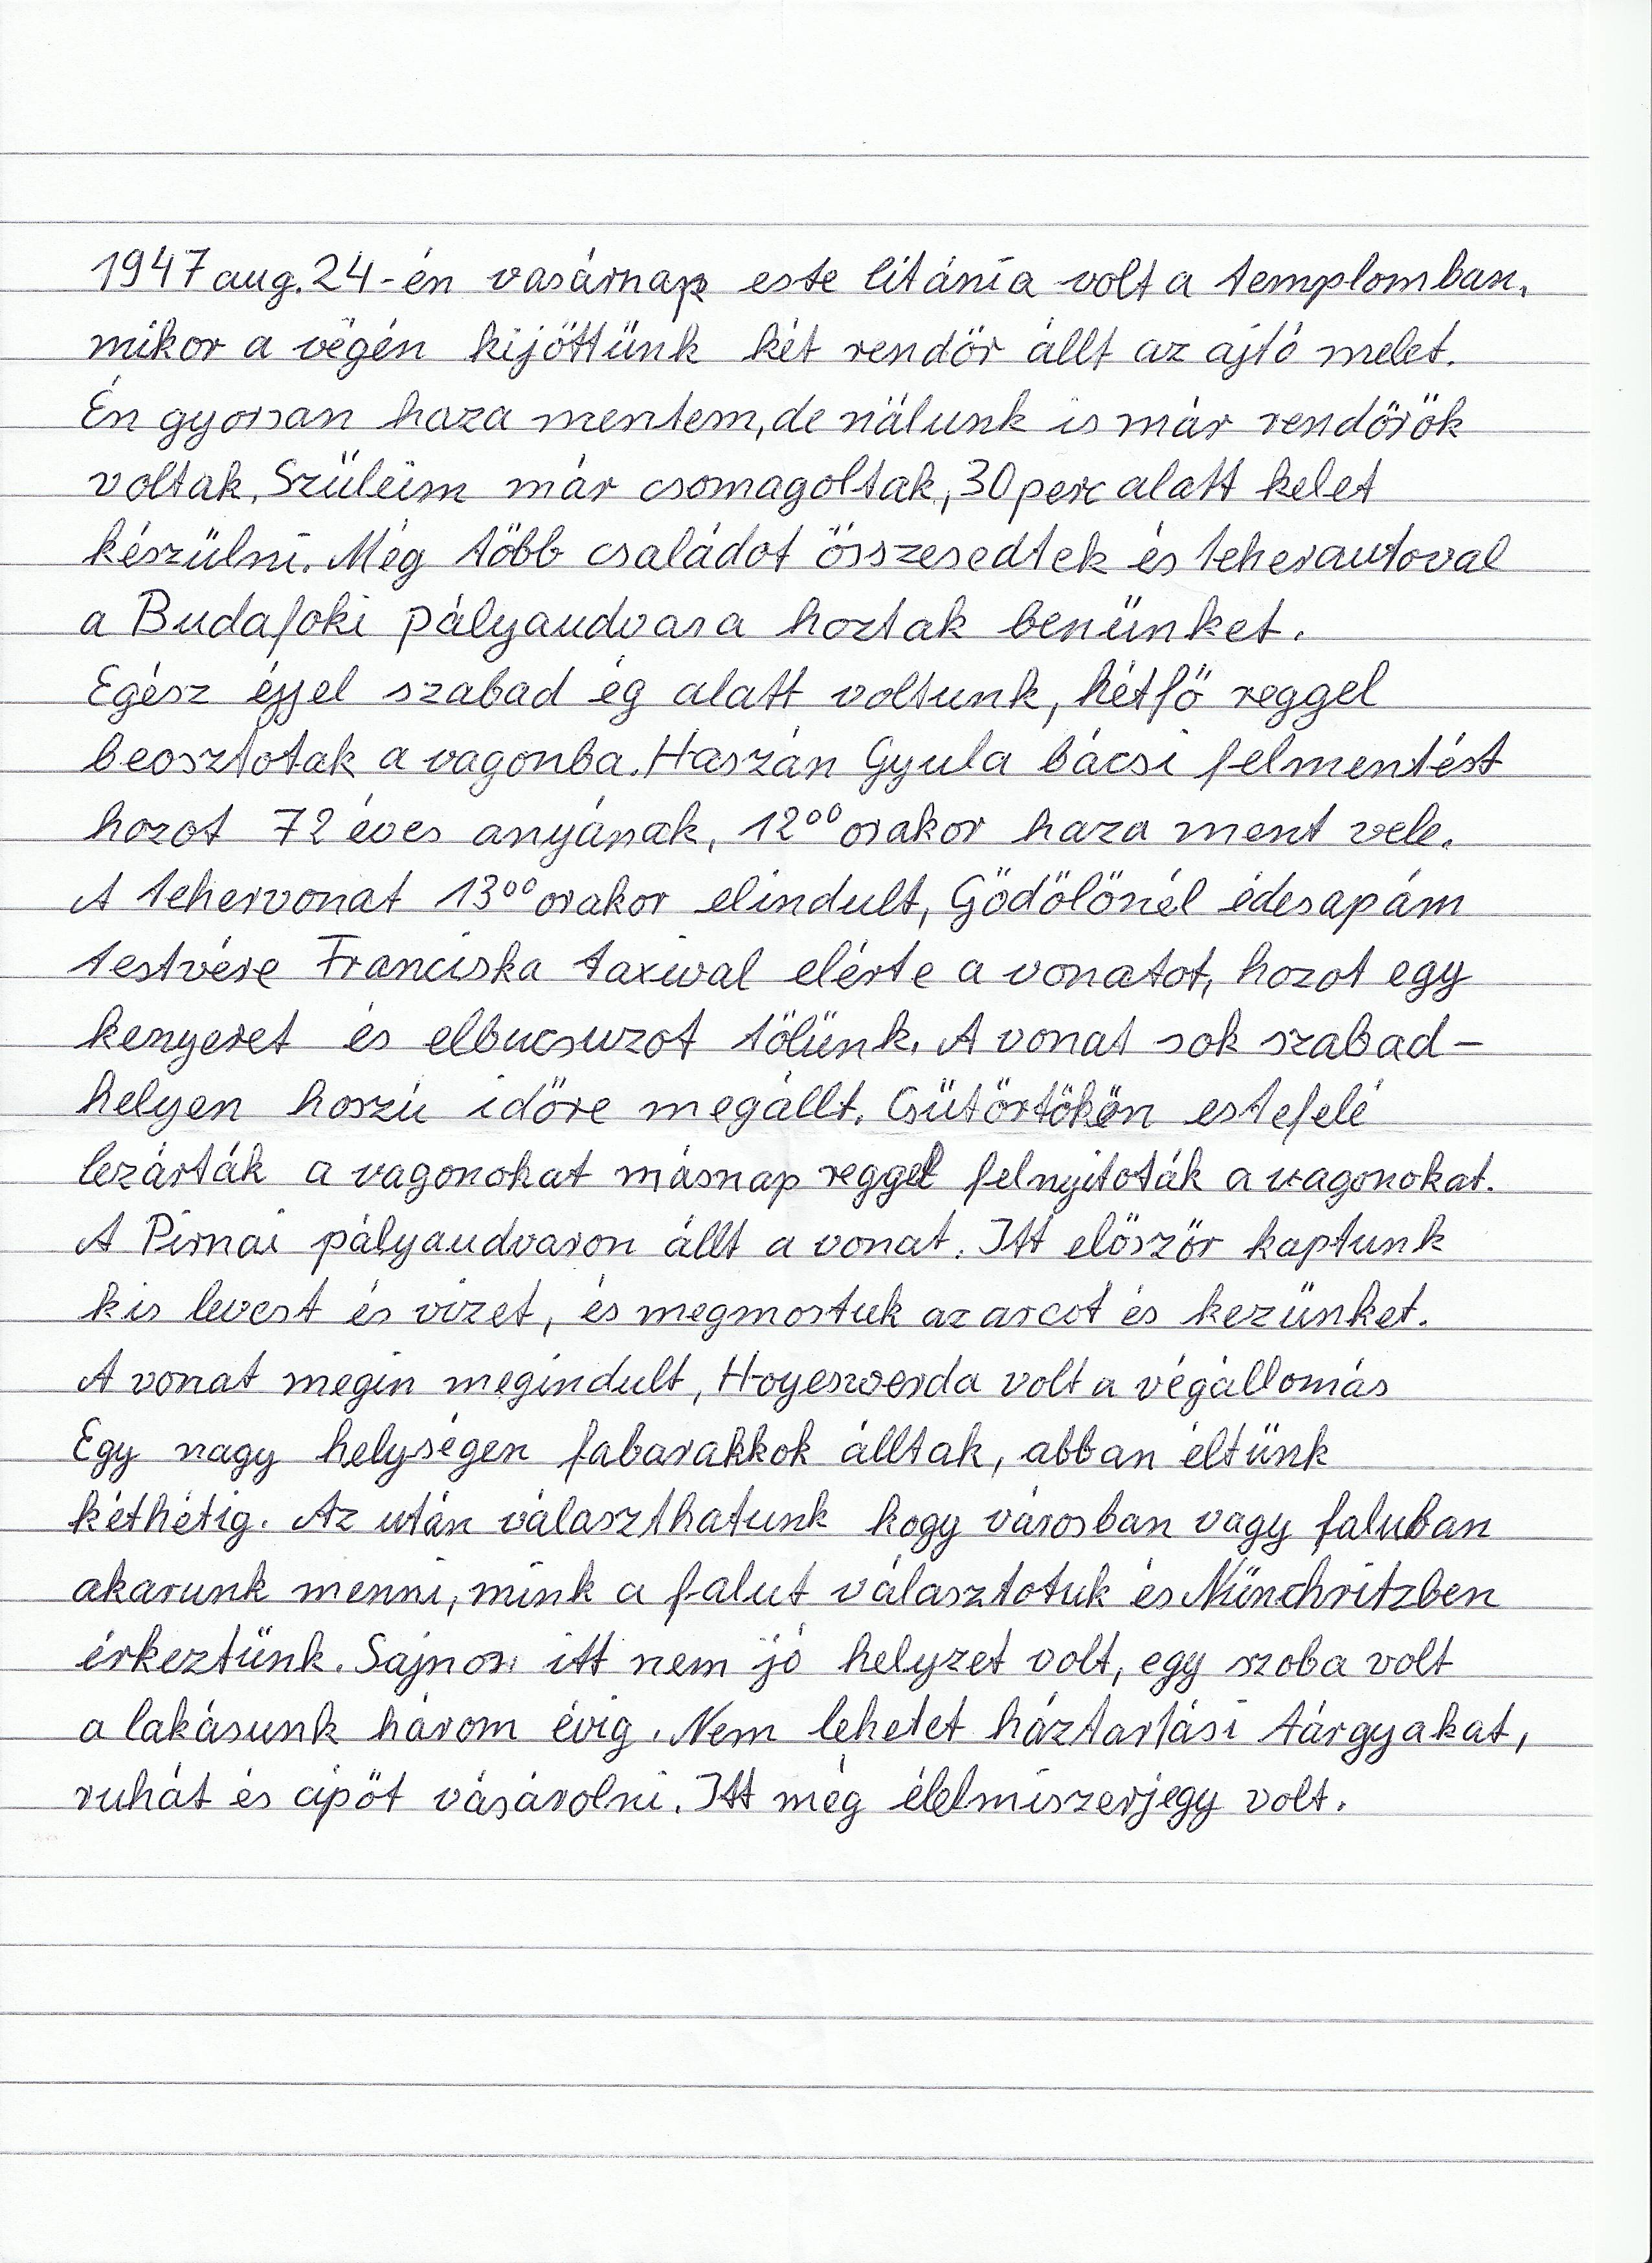 1947 aug. 24-én vasárnap este litánia volt a templomban,
mikor a végén kijöttünk két rendör állt az ajtó melet.
Én gyorsan haza mentem, de nálunk is már rendőrök
voltak. Szüleim már csomagoltak, 30 perc alatt kelet
készülni. Még több családot összesedtek és teherautoval
a Budafoki pályaudvara hoztak benünket.
Egész éjjel szabad ég alatt voltunk, hétfő reggel
beosztotak a vagonba. Haszán Gyula bácsi felmentést
hozot 72 éves anyának, 12⁰⁰ orakor haza ment vele.
A tehervonat 13⁰⁰ orakor elindult, Gödölönél édesapám
testvére Franciska taxival elérte a vonatot, hozot egy
kenyeret és elbucsuzot tölünk. A vonat sok szabad-
helyen hoszú időre megállt. Csütörtökön estefelé
lezárták a vagonokat másnap reggel felnyitoták a vagonokat.
A Pirnai pályaudvaron állt a vonat. Itt először kaptunk
kis levest és vizet, és megmostuk az arcot és kezünket.
A vonat megin megindult, Hoyerswerda volt a végállomás
Egy nagy helységen fabarakkok álltak, abban éltünk
kéthétig. Az után választhatunk hogy városban vagy faluban
akarunk menni, mink a falut választotuk és Nünchritzben
érkeztünk. Sajnos itt nem jó helyzet volt, egy szoba volt
a lakásunk három évig. Nem lehetet háztartási tárgyakat,
ruhát és cipőt vásárolni. Itt még élelmiszerjegy volt.